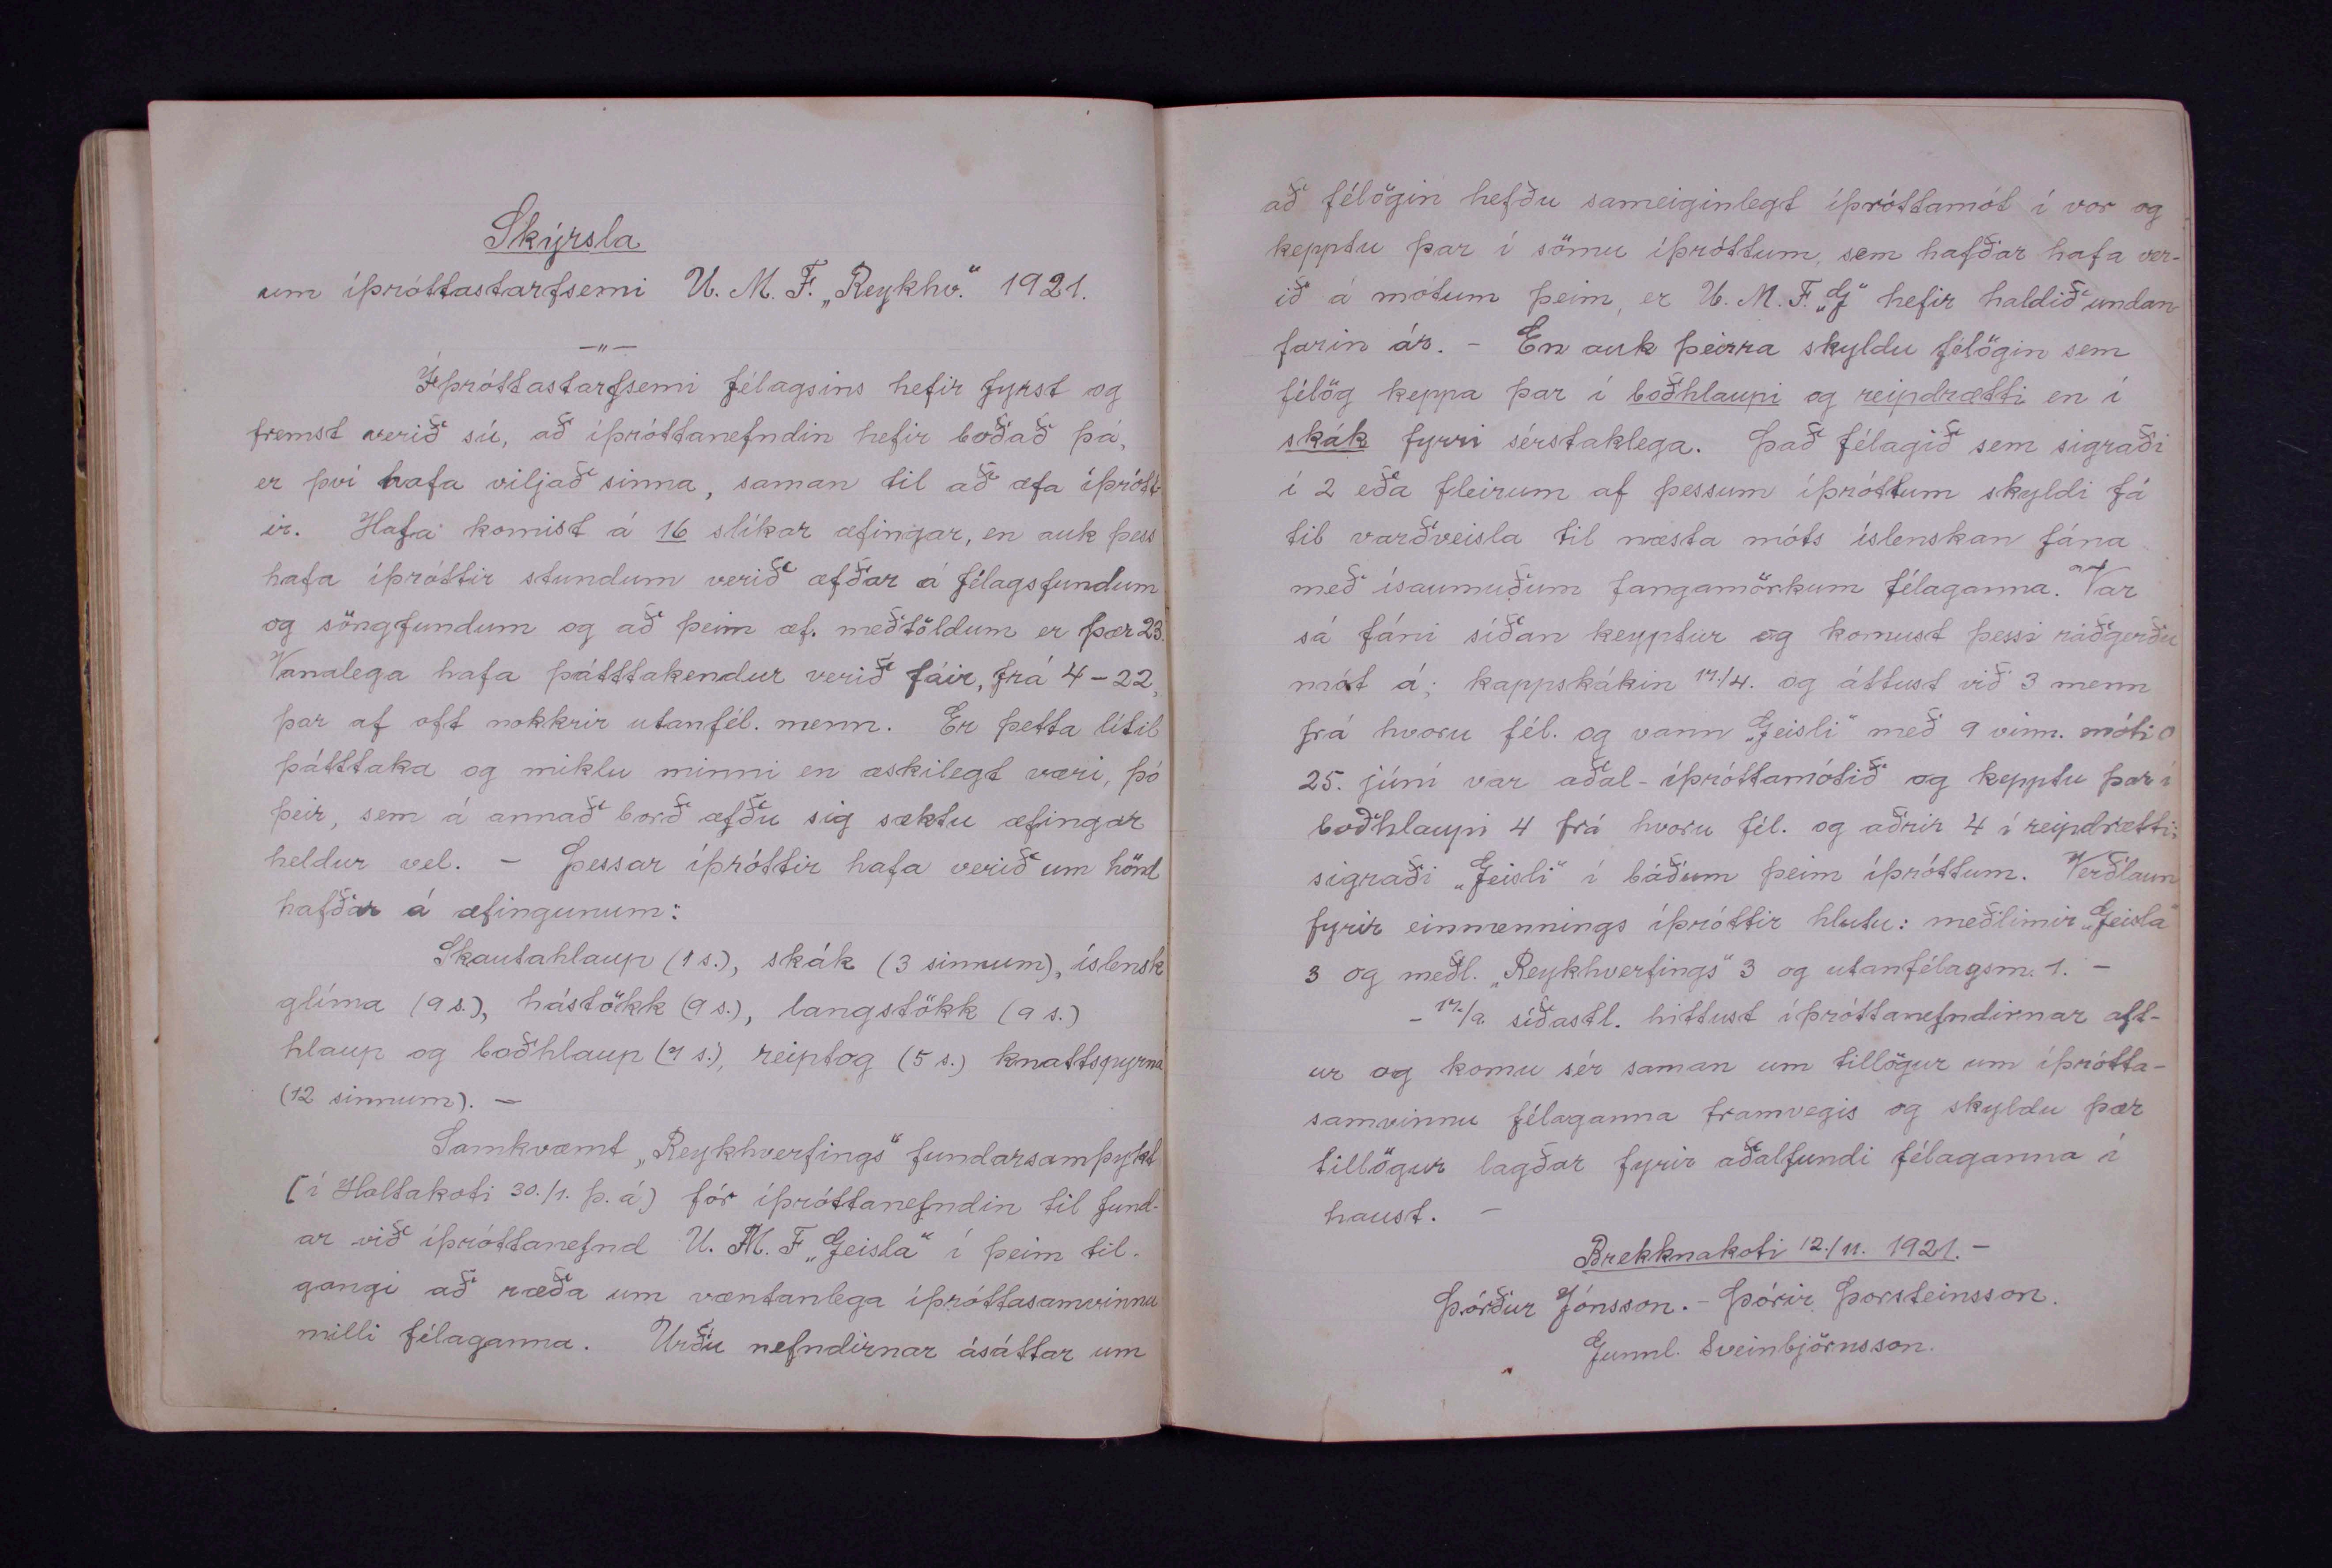 Skýrsla
um íþróttastarfsemi U. M. F. „Reykhv." 1921.
—"—
Íþróttastarfsemi félagsins hefir fyrst og
fremst verið sú, að íþróttanefndin hefir boðað þá,
er því hafa viljað sinna, saman til að æfa íþrótt-
ir. Hafa komist á 16 slíkar æfingar, en auk þess
hafa íþróttir stundum verið æfðar á félagsfundum
og söngfundum og að þeim æf. meðtöldum er þær 23.
Vanalega hafa þátttakendur verið fáir, frá 4 – 22,
þar af oft nokkrir utanfél. menn. Er þetta lítil
þátttaka og miklu minni en æskilegt væri, þó
þeir, sem á annað borð æfðu sig sæktu æfingar
heldur vel. – Þessar íþróttir hafa verið um hönd
hafðar á æfingunum:
Skautahlaup (1 s.), skák (3 sinnum), íslensk
glíma (9 s.), hástökk (9 s.), langstökk (9 s.)
hlaup og boðhlaup (7 s.), reiptog (5 s.) knattspyrna
(12 sinnum). –
Samkvæmt „Reykhverfings" fundarsamþykt
(í Holtakoti 30./1. þ. á) fór íþróttanefndin til fund-
ar við íþróttanefnd U. M. F „Geisla" í þeim til-
gangi að ræða um væntanlega íþróttasamvinnu
milli félaganna. Urðu nefndirnar ásáttar um
að félögin hefðu sameiginlegt íþróttamót í vor og
kepptu þar í sömu íþróttum, sem hafðar hafa ver-
ið á mótum þeim, er U. M. F. „G" hefir haldið undan
farin ár. – En auk þeirra skyldu félögin sem
félög keppa þar í boðhlaupi og reipdrætti en í
skák fyrri sérstaklega. Það félagið sem sigraði
í 2 eða fleirum af þessum íþróttum skyldi fá
til varðveisla til næsta móts íslenskan fána
með ísaumuðum fangamörkum félaganna. Var
sá fáni síðan keyptur og komust þessi ráðgerðu
mót á; kappskákin 17./4. og áttust við 3 menn
frá hvoru fél. og vann „Geisli" með 9 vinn. móti 0
25. júní var aðal-íþróttamótið og kepptu þar í
boðhlaupi 4 frá hvoru fél. og aðrir 4 í reipdrætti;
sigraði „Geisli" í báðum þeim íþróttum. Verðlaun
fyrir einmennings íþróttir hlutu: meðlimir „Geisla"
3 og meðl. „Reykhverfings" 3 og utanfélagsm. 1. –
– 17./9. síðastl. hittust íþróttanefndirnar aft-
ur og komu sér saman um tillögur um íþrótta-
samvinnu félaganna framvegis og skyldu þær
tillögur lagðar fyrir aðalfundi félaganna í
haust. –
Brekknakoti 12./11. 1921. –
Þórður Jónsson. – Þórir Þorsteinsson.
Gunnl. Sveinbjörnsson.